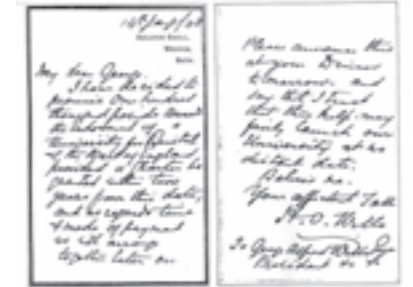 14th Jany/08
My dear George.
I have decided to
promise One hundred
thousand pounds toward
the endowment of a
University for Bristol
& the West of England
provided a Charter be
granted within two
years from this date,
and as regards time
& mode of payment
we will arrange
together later on
Please announce this
at your Dinner
tomorrow and
say that I trust
that this help may
launch our
University at no
distant date.
Believe me.
Your affect
H. O. Wills
To George Alfred Wills
President